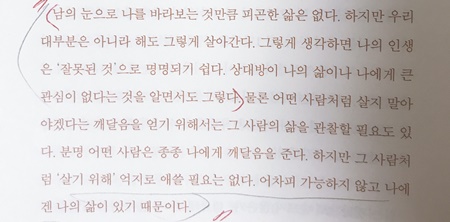 남의 눈으로 나를 바라보는 것만큼 피곤한 삶은 없다. 하지만 우리
대부분은 아니라 해도 그렇게 살아간다. 그렇게 생각하면 나의 인생
은 ‘잘못된 것’으로 명명되기 쉽다. 상대방이 나의 삶이나 나에게 큰
관심이 없다는 것을 알면서도 그렇다. 물론 어떤 사람처럼 살지 말아
야겠다는 깨달음을 얻기 위해서는 그 사람의 삶을 관찰할 필요도 있
다. 분명 어떤 사람은 종종 나에게 깨달음을 준다. 하지만 그 사람처
럼 ‘살기 위해’ 억지로 애쓸 필요는 없다. 어차피 가능하지 않고 나에
겐 나의 삶이 있기 때문이다.